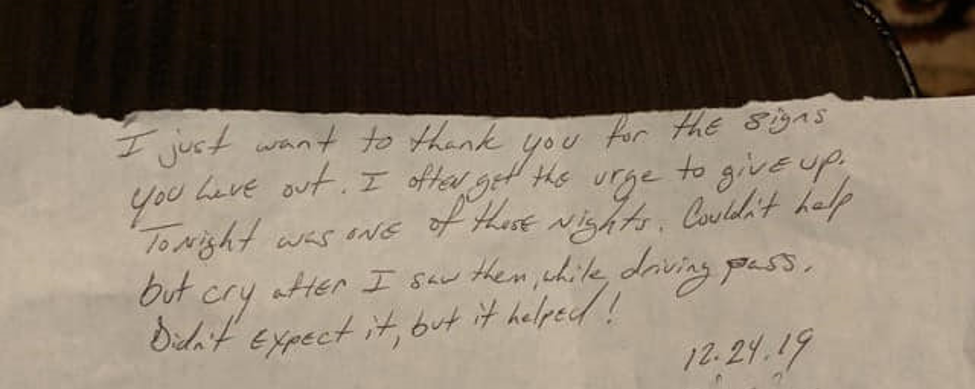 I just want to thank you for the signs
you have out. I often get the urge to give up.
Tonight was one of those nights. Couldn't help
but cry after I saw them, while driving pass.
Didn't expect it, but it helped!
12.24.19